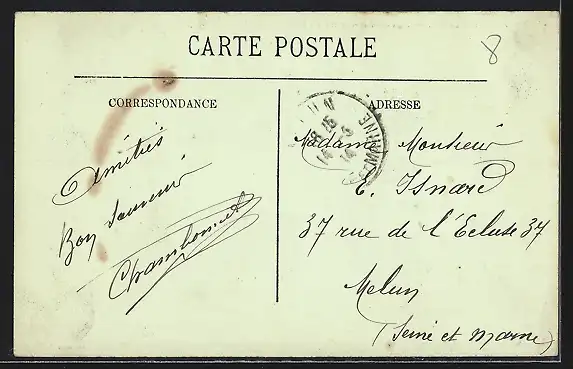 CARTE POSTALE
8
CORRESPONDANCE
ADRESSE
Amitiés
Bon Souvenir
Chambonnet
Madame, Monsieur
E. Isnard
37 rue de l'Ecluse 37
Melun
(Seine et Marne)